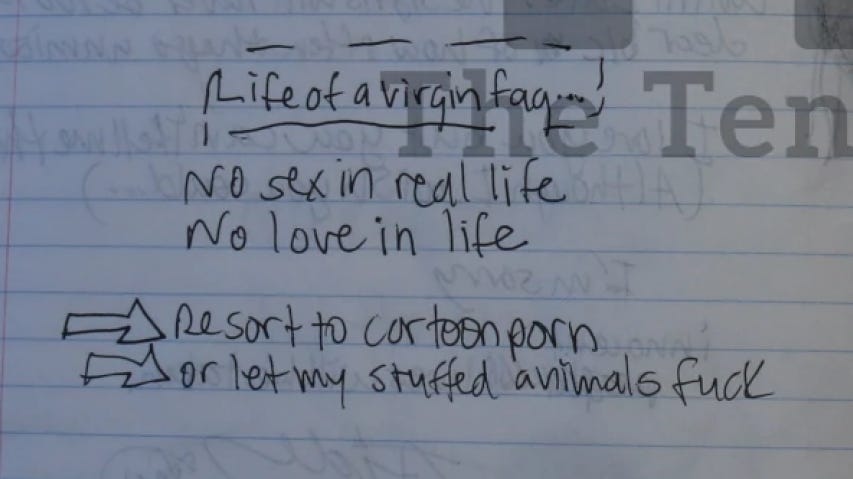 Life of a virgin fag...
No sex in real life
No love in life
Resort to cartoon porn
or let my stuffed animals fuck
The Ten